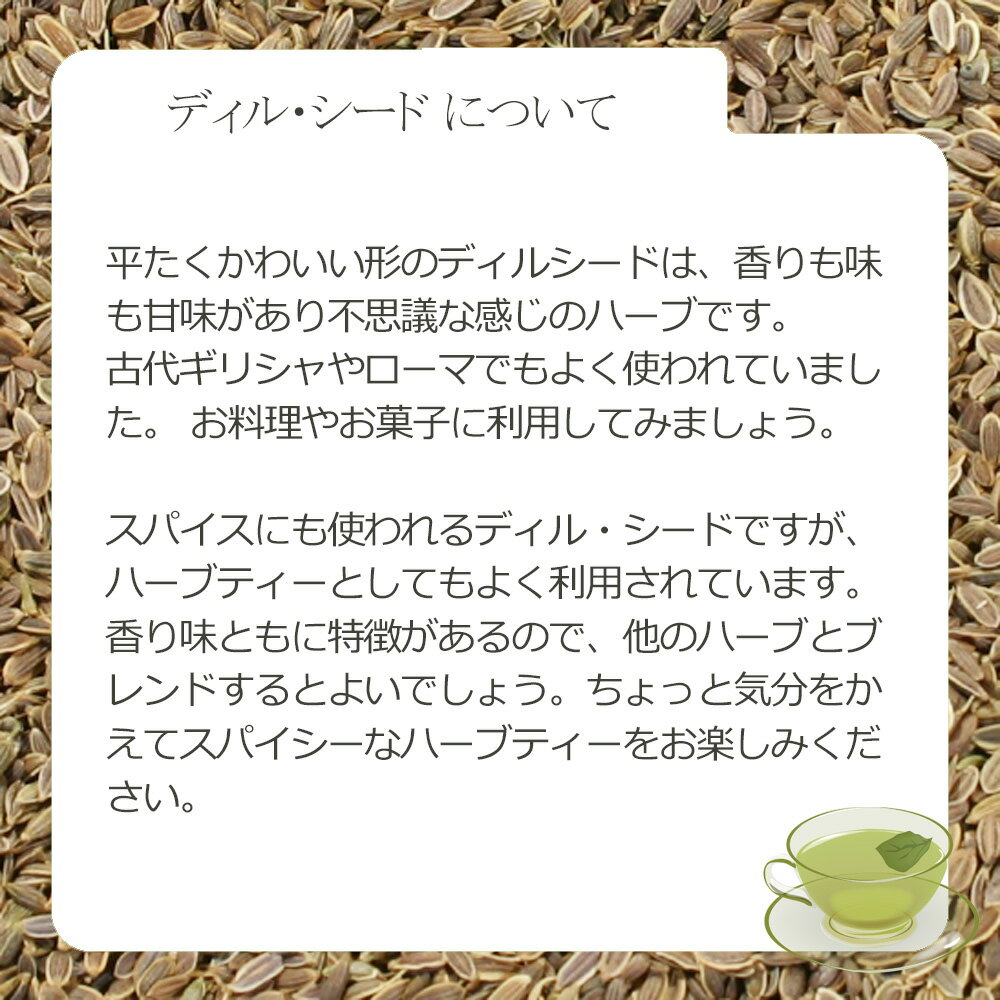 ディル・シード について
平たくかわいい形のディルシードは、香りも味
も甘味があり不思議な感じのハーブです。
古代ギリシャやローマでもよく使われていまし
た。 お料理やお菓子に利用してみましょう。
スパイスにも使われるディル・シードですが、
ハーブティーとしてもよく利用されています。
香り味ともに特徴があるので、他のハーブとブ
レンドするとよいでしょう。ちょっと気分をか
えてスパイシーなハーブティーをお楽しみくだ
さい。